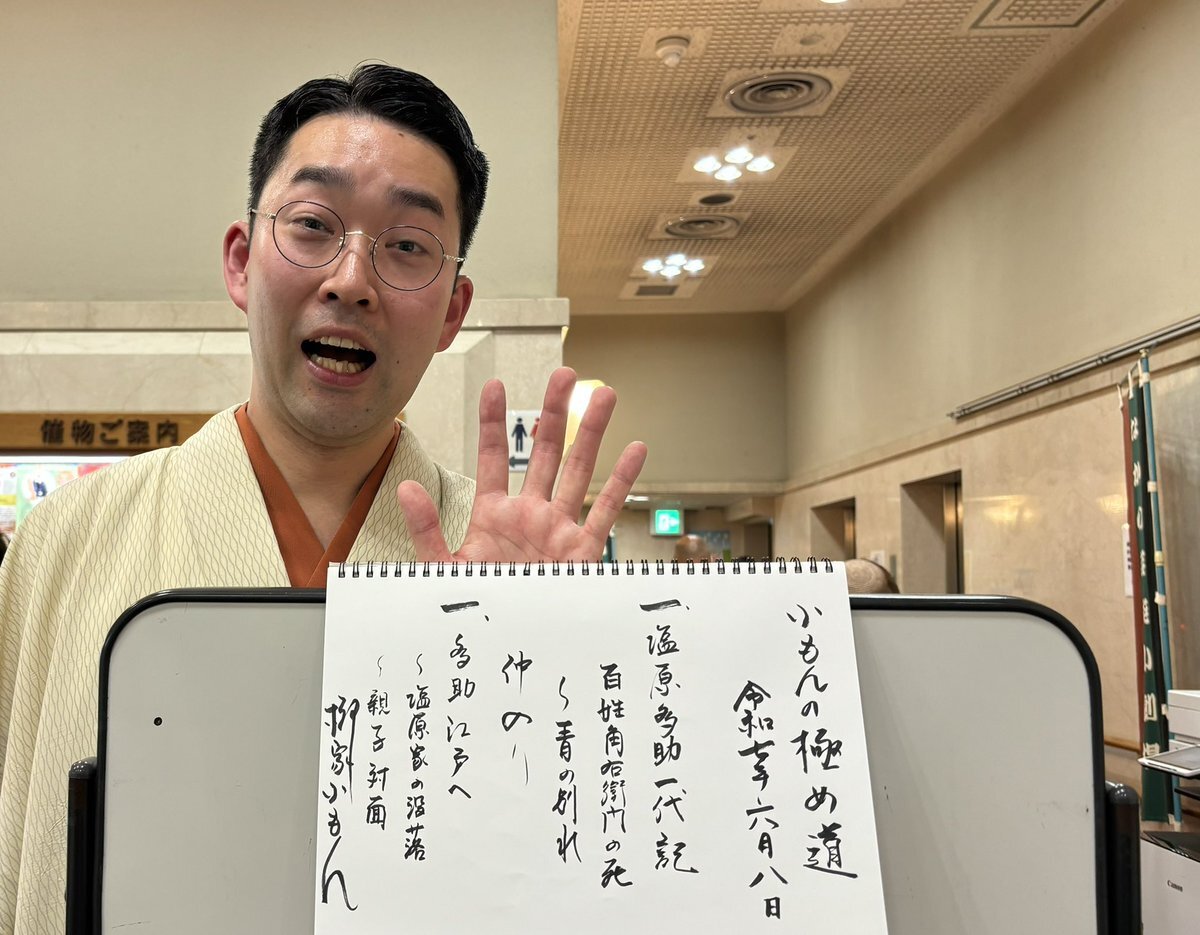 小もんの極め道
令和七年六月八日
一、塩原多助一代記
百姓角右衛門の死
〜青の別れ
仲のり
一、多助江戸へ
〜塩原家の没落
〜親子対面
柳家小もん
催物ご案内
Canon